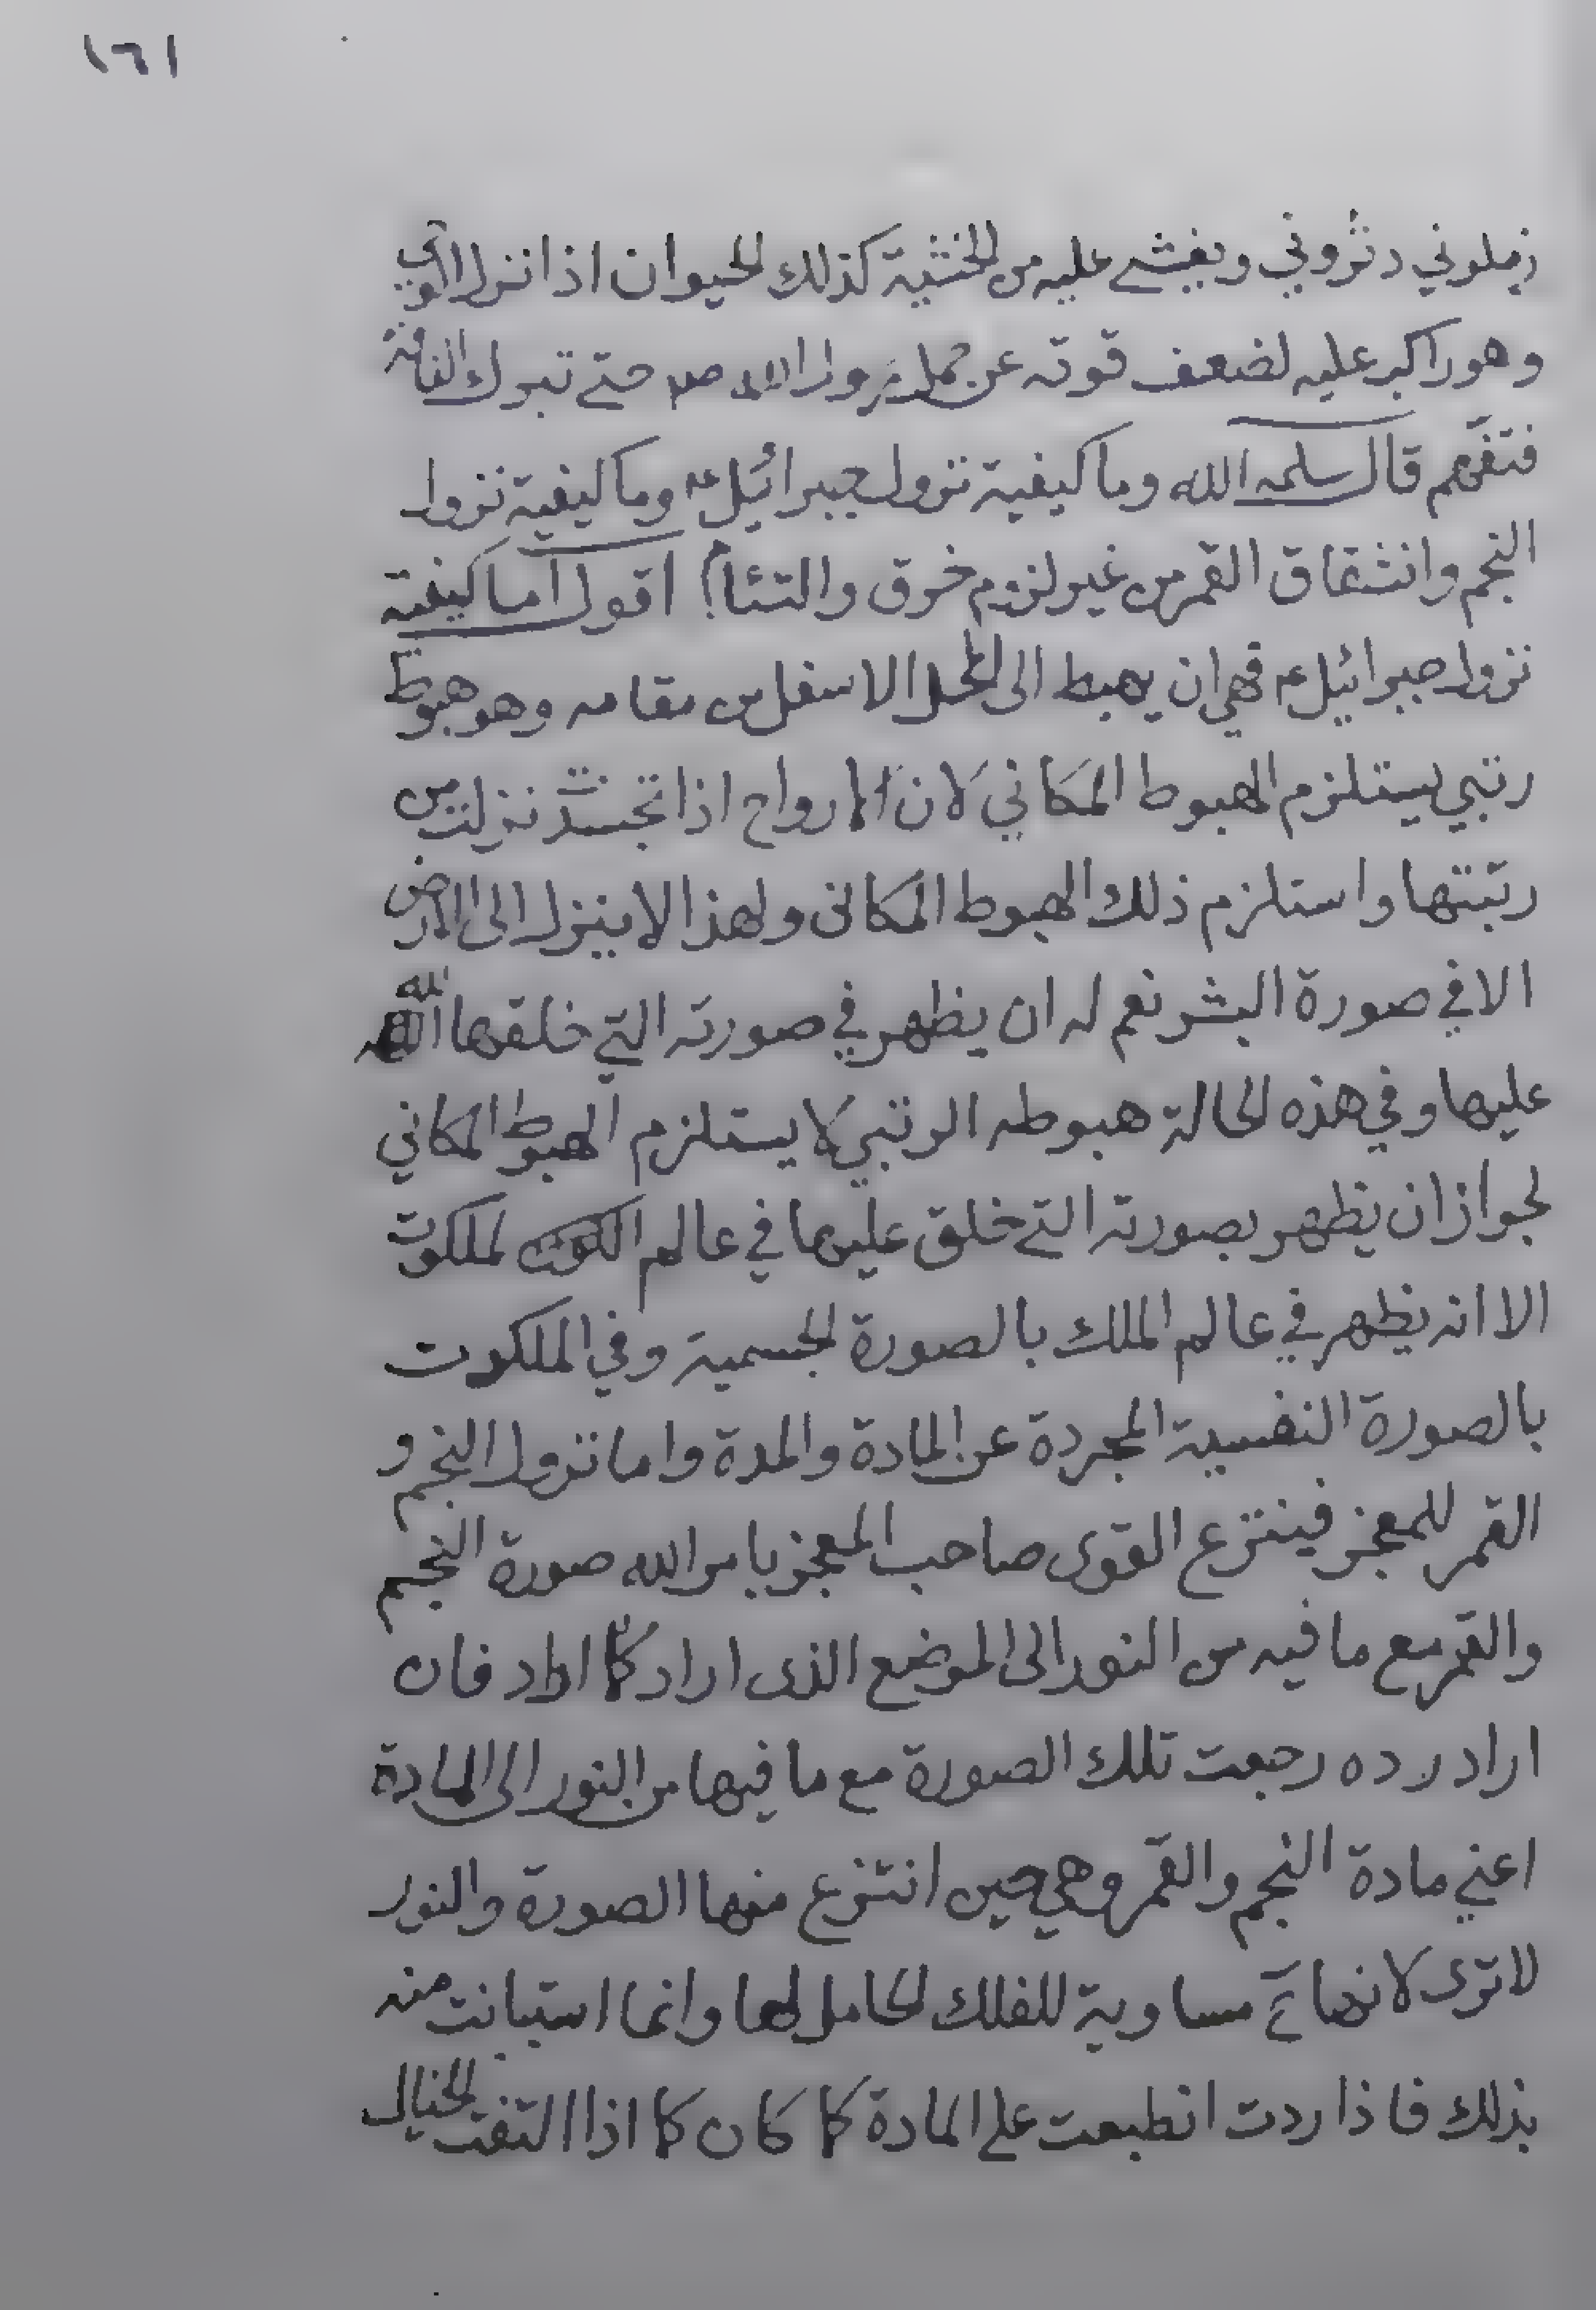 ١٦١
زملوني دثروني ويغشى عليه من الخشية كذلك الحيوان اذا نزل الوحي
وهو راكب عليه لضعف قوته عن حمل رسول الله صم حتى تبرك الناقة
فتفهم قال سلمه الله وما كيفية نزول جبرائيل ع وما كيفية نزول
النجم وانشقاق القمر من غير لزوم خرق والتئام اقول اما كيفية
نزول جبرائيل ع فهي ان يهبط الى المحل الاسفل من مقامه وهو هبوط
رتبي يستلزم الهبوط المكاني لان الارواح اذا تجسدت نزلت من
رتبتها واستلزم ذلك الهبوط المكاني ولهذا لا ينزل الى الارض
الا في صورة البشر نعم له ان يظهر في صورته التي خلقها الله
عليها وفي هذه الحالة هبوطه الرتبي لا يستلزم الهبوط المكاني
لجواز ان يظهر بصورته التي خلق عليها في عالم الملكوت
الا انه يظهر في عالم الملك بالصورة الجسمية وفي الملكوت
بالصورة النفسية المجردة عن المادة والمدة واما نزول النجم و
القمر للمعجز فينتزع القوى صاحب المعجز بامر الله صورة النجم
والقمر مع ما فيه من النور الى الموضع الذى اراد كما اراد فان
اراد رده رجعت تلك الصورة مع ما فيها من النور الى المادة
اعني مادة النجم والقمر وهي حين انتزع منها الصورة والنور
لا ترى لانها ح مساوية للفلك الحامل لها وانما استبانت منه
بذلك فاذا ردت انطبعت على المادة كما كان كما اذا التفت الخيال